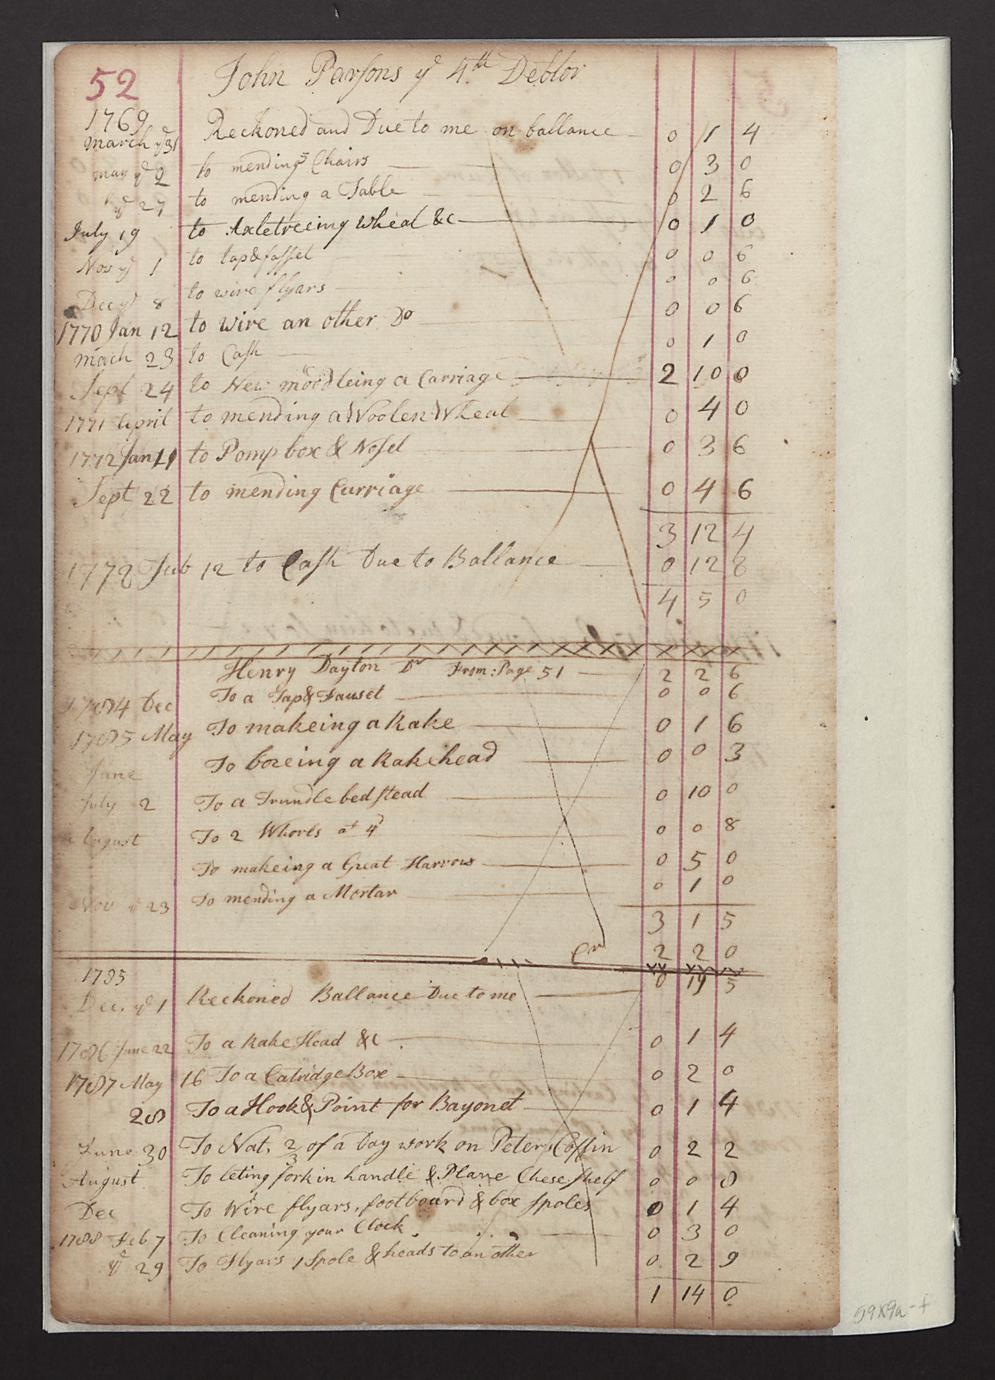 52 John Parsons ye 4th Debtor
1769
March ye 31 Reckoned and Due to me on ballance 0 1 4
may ye 2 to mending 5 Chairs 0 3 0
ye 27 to mending a Table 0 2 6
July 19 to Axletreeing Wheal &c 0 1 0
Nov ye 1 to tap & fasset 0 0 6
Dec ye 8 to wire flyars 0 0 6
1770 Jan 12 to wire an other Do 0 0 6
mach 23 to Cash 0 1 0
Sept 24 to New moodleing a Carriage 2 10 0
1771 April to mending a Woolen Wheal 0 4 0
1772 Jan 11 to Pomp box & Nosel 0 3 6
Sept 22 to mending Carriage 0 4 6
3 12 4
1772 Feb 12 to Cash Due to Ballance 0 12 8
4 5 0
Henry Dayton Dr From: Page 51 2 2 6
1784 Dec To a Tap & Fauset 0 0 6
1785 May To makeing a Rake 0 1 6
June To boreing a Rake head 0 0 3
July 2 To a Trundle bed stead 0 10 0
August To 2 Whorls at 4d 0 0 8
To makeing a Great Harrow 0 5 0
Nov ye 23 To mending a Mortar 0 1 0
3 1 5
Cr 2 2 0
1785 0 19 5
Dec. ye 1 Reckoned Ballance Due to me
1786 June 22 To a Rake Head &c. 0 1 4
1787 May 16 To a Catridge Box 0 2 0
28 To a Hook & Point for Bayonet 0 1 4
June 30 To Nat. 2/3 of a Day work on Peter Coffin 0 2 2
August To leting fork in handle & Plane Chese shelf 0 0 8
Dec To Wire flyars, footboard & box spoles 0 1 4
1788 Feb 7 To Cleaning your Clock 0 3 0
ye 29 To Flyars 1 Spole & heads to an other 0 2 9
1 14 0
59x9a-f